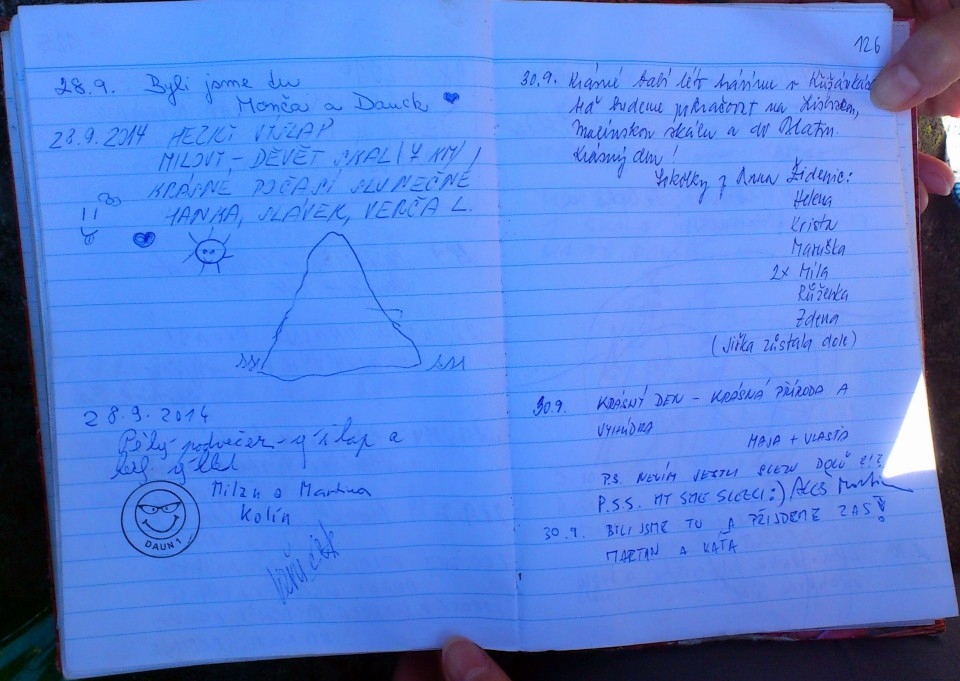 28.9. Byli jsme tu
Monča a Danek
28.9.2014 HEZKÝ VÝŠLAP
MILOVY - DEVĚT SKAL (7 KM)
KRÁSNÉ POČASÍ SLUNEČNÉ
HANKA, SLÁVEK, VERČA L.
28.9.2014
Pěkný podvečer - výšlap a
Milan a Martina
Kolín
DAUN 1
126
30.9. Krásné babí léto
než budeme pokračovat na
Malínskou skálu a do Blatin.
Krásný den!
Sokolky z Brna Židenic:
Helena
Krista
Maruška
2x Míla
Růženka
Zdena
(Jiřka zůstala dole)
30.9. KRÁSNÝ DEN - KRÁSNÁ PŘÍRODA A
VYHLÍDKA
MAJA + VLASŤA
P.S. NEVÍM JESTLI SLEZU DOLŮ ?!?
P.S.S. MY SME SLEZLI :) ALEŠ Martin
30.9. BILI JSME TU A PŘIJDEME ZAS!
MARTAN A KAŤA